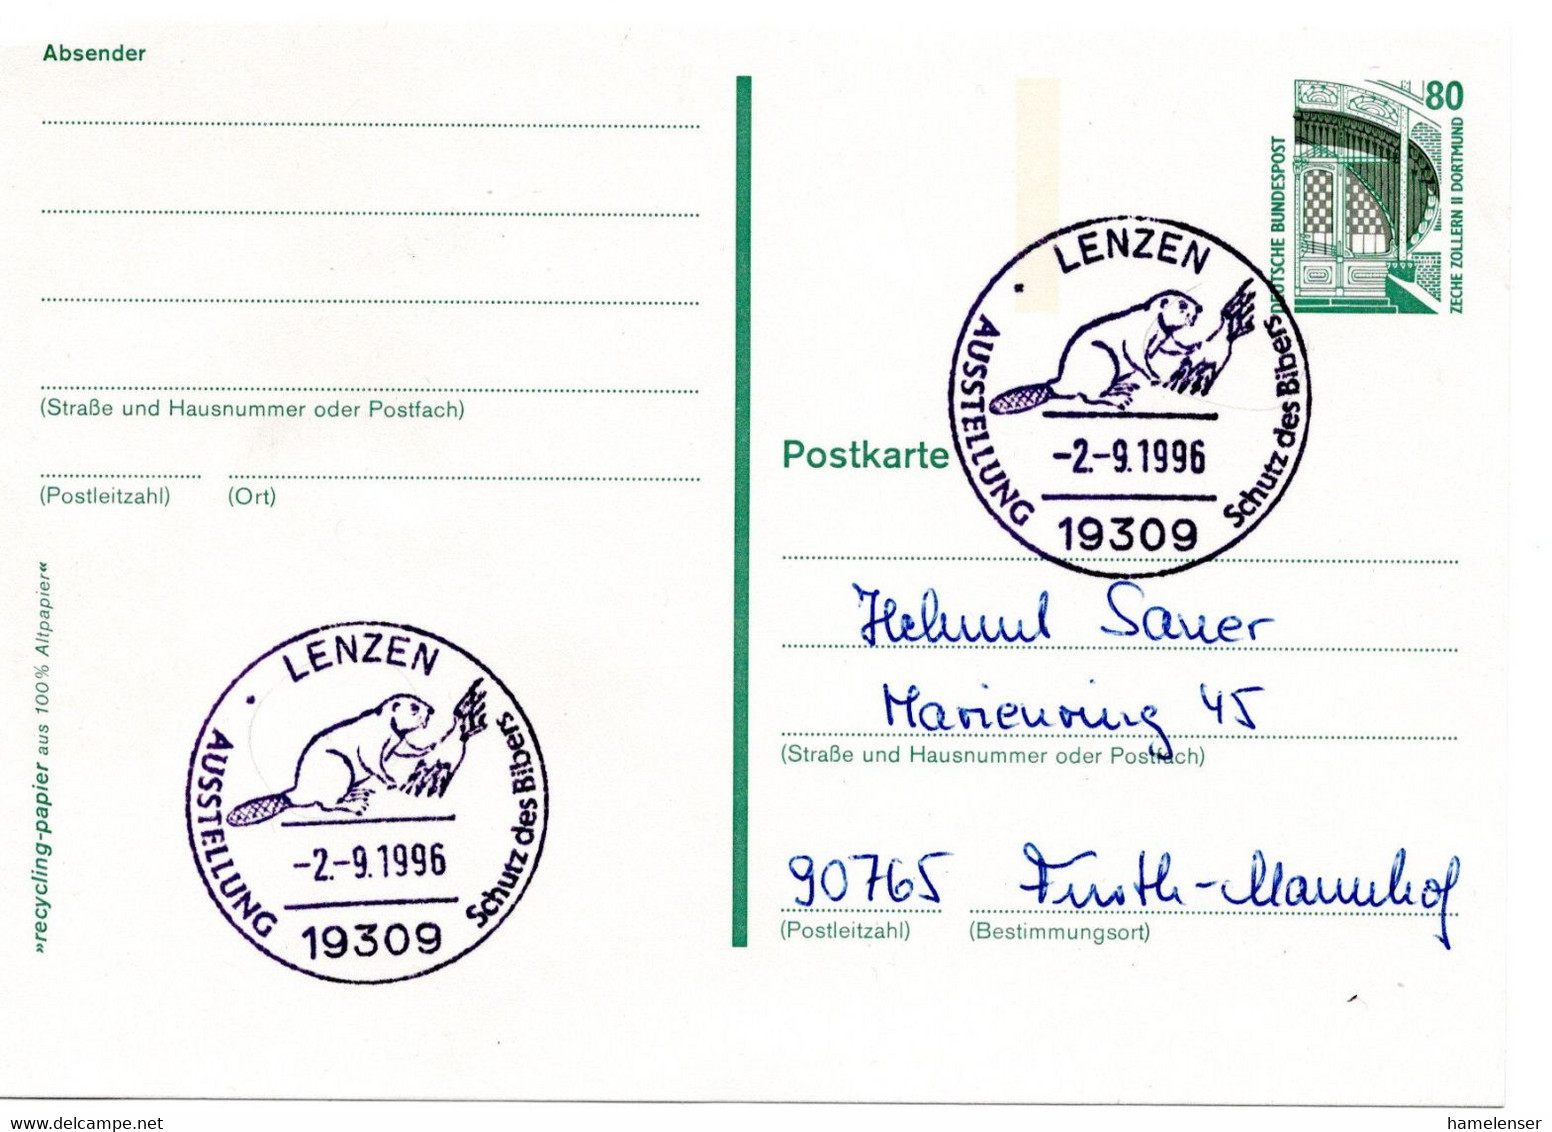 Absender
(Straße und Hausnummer oder Postfach)
(Postleitzahl) (Ort)
»recycling-papier aus 100% Altpapier«
LENZEN
AUSSTELLUNG
Schutz des Bibers
-2.-9.1996
19309
80
DEUTSCHE BUNDESPOST
ZECHE ZOLLERN II DORTMUND
LENZEN
AUSSTELLUNG
Schutz des Bibers
-2.-9.1996
19309
Postkarte
Helmut Sauer
Marienring 45
(Straße und Hausnummer oder Postfach)
90765 Fürth-Mannhof
(Postleitzahl) (Bestimmungsort)
hamelenser
delcampe.net